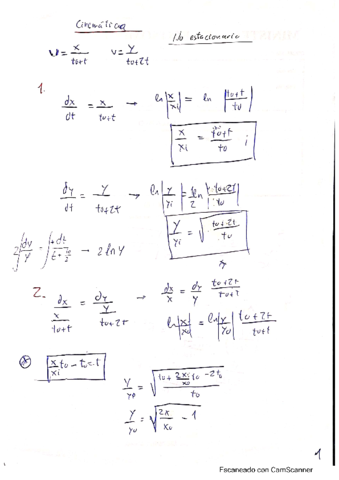 Cinemática
No estacionario
u = x/(t0+t)   v = y/(t0+2t)
1.
dx/dt = x/(t0+t) → ln|x/xi| = ln |(t0+t)/t0|
x/xi = (t0+t)/t0 i
dy/dt = y/(t0+2t) → ln|y/yi| = 1/2 ln |(t0+2t)/t0|
y/yi = √((t0+2t)/t0)
→ 2 ln y
2.
dx/(x/(t0+t)) = dy/(y/(t0+2t)) → dx/x = dy/y (t0+2t)/(t0+t)
ln|x/x0| = ln|y/y0| (t0+2t)/(t0+t)
* x/xi t0 - t0 = t
y/y0 = √((t0 + 2x/x0 t0 - 2t0)/t0)
y/y0 = √(2x/x0 - 1)
1
Escaneado con CamScanner